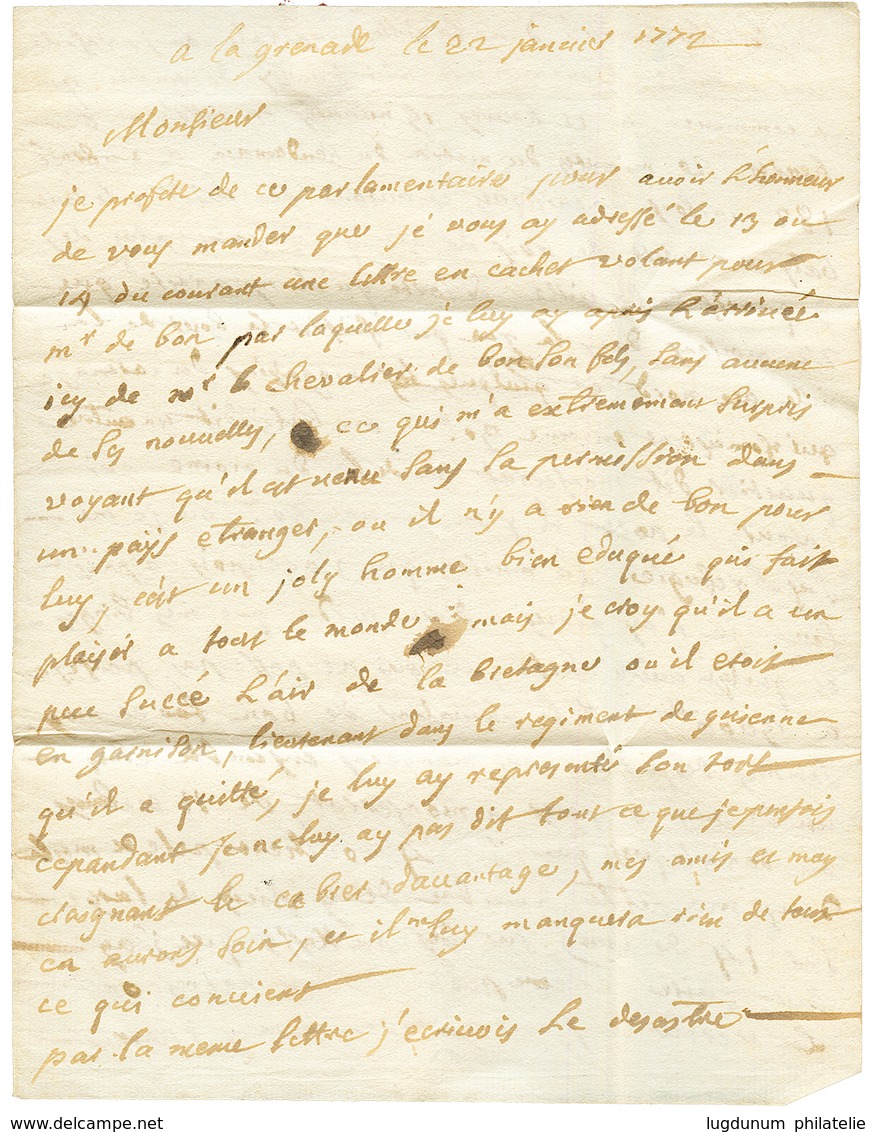 a la grenade le 22 janvier 1772
Monsieur
je profite de ce parlementaire pour avoir L'honneur
de vous mander que je vous ay adressé le 13 ou
14 du courant une lettre en cachet volant pour
mr de bon par laquelle je luy ay apris L'arrivée
icy de mr le chevalier de bon son fils, sans aucune
de ses nouvelles, ce qui m'a extremement surpris
voyant qu'il est venu sans sa permission dans
un païs etranger, ou il n'y a rien de bon pour
luy, c'est un joly homme bien eduqué qui fait
plaisir a tout le monde mais je croy qu'il a un
peu succé L'air de la bretagne ou il etoit
en garnison, lieutenant dans le regiment de guienne
qu'il a quitté, je luy ay representé son tort
cepandant je ne luy ay pas dit tout ce que je pensois
craignant le cabrer d'avantage, mes amis et moy
en aurons soin, et il ne luy manquera rien de tout
ce qui convient
par la meme lettre j'ecrivois Le desastre
www.delcampe.net
lugdunum philatelie